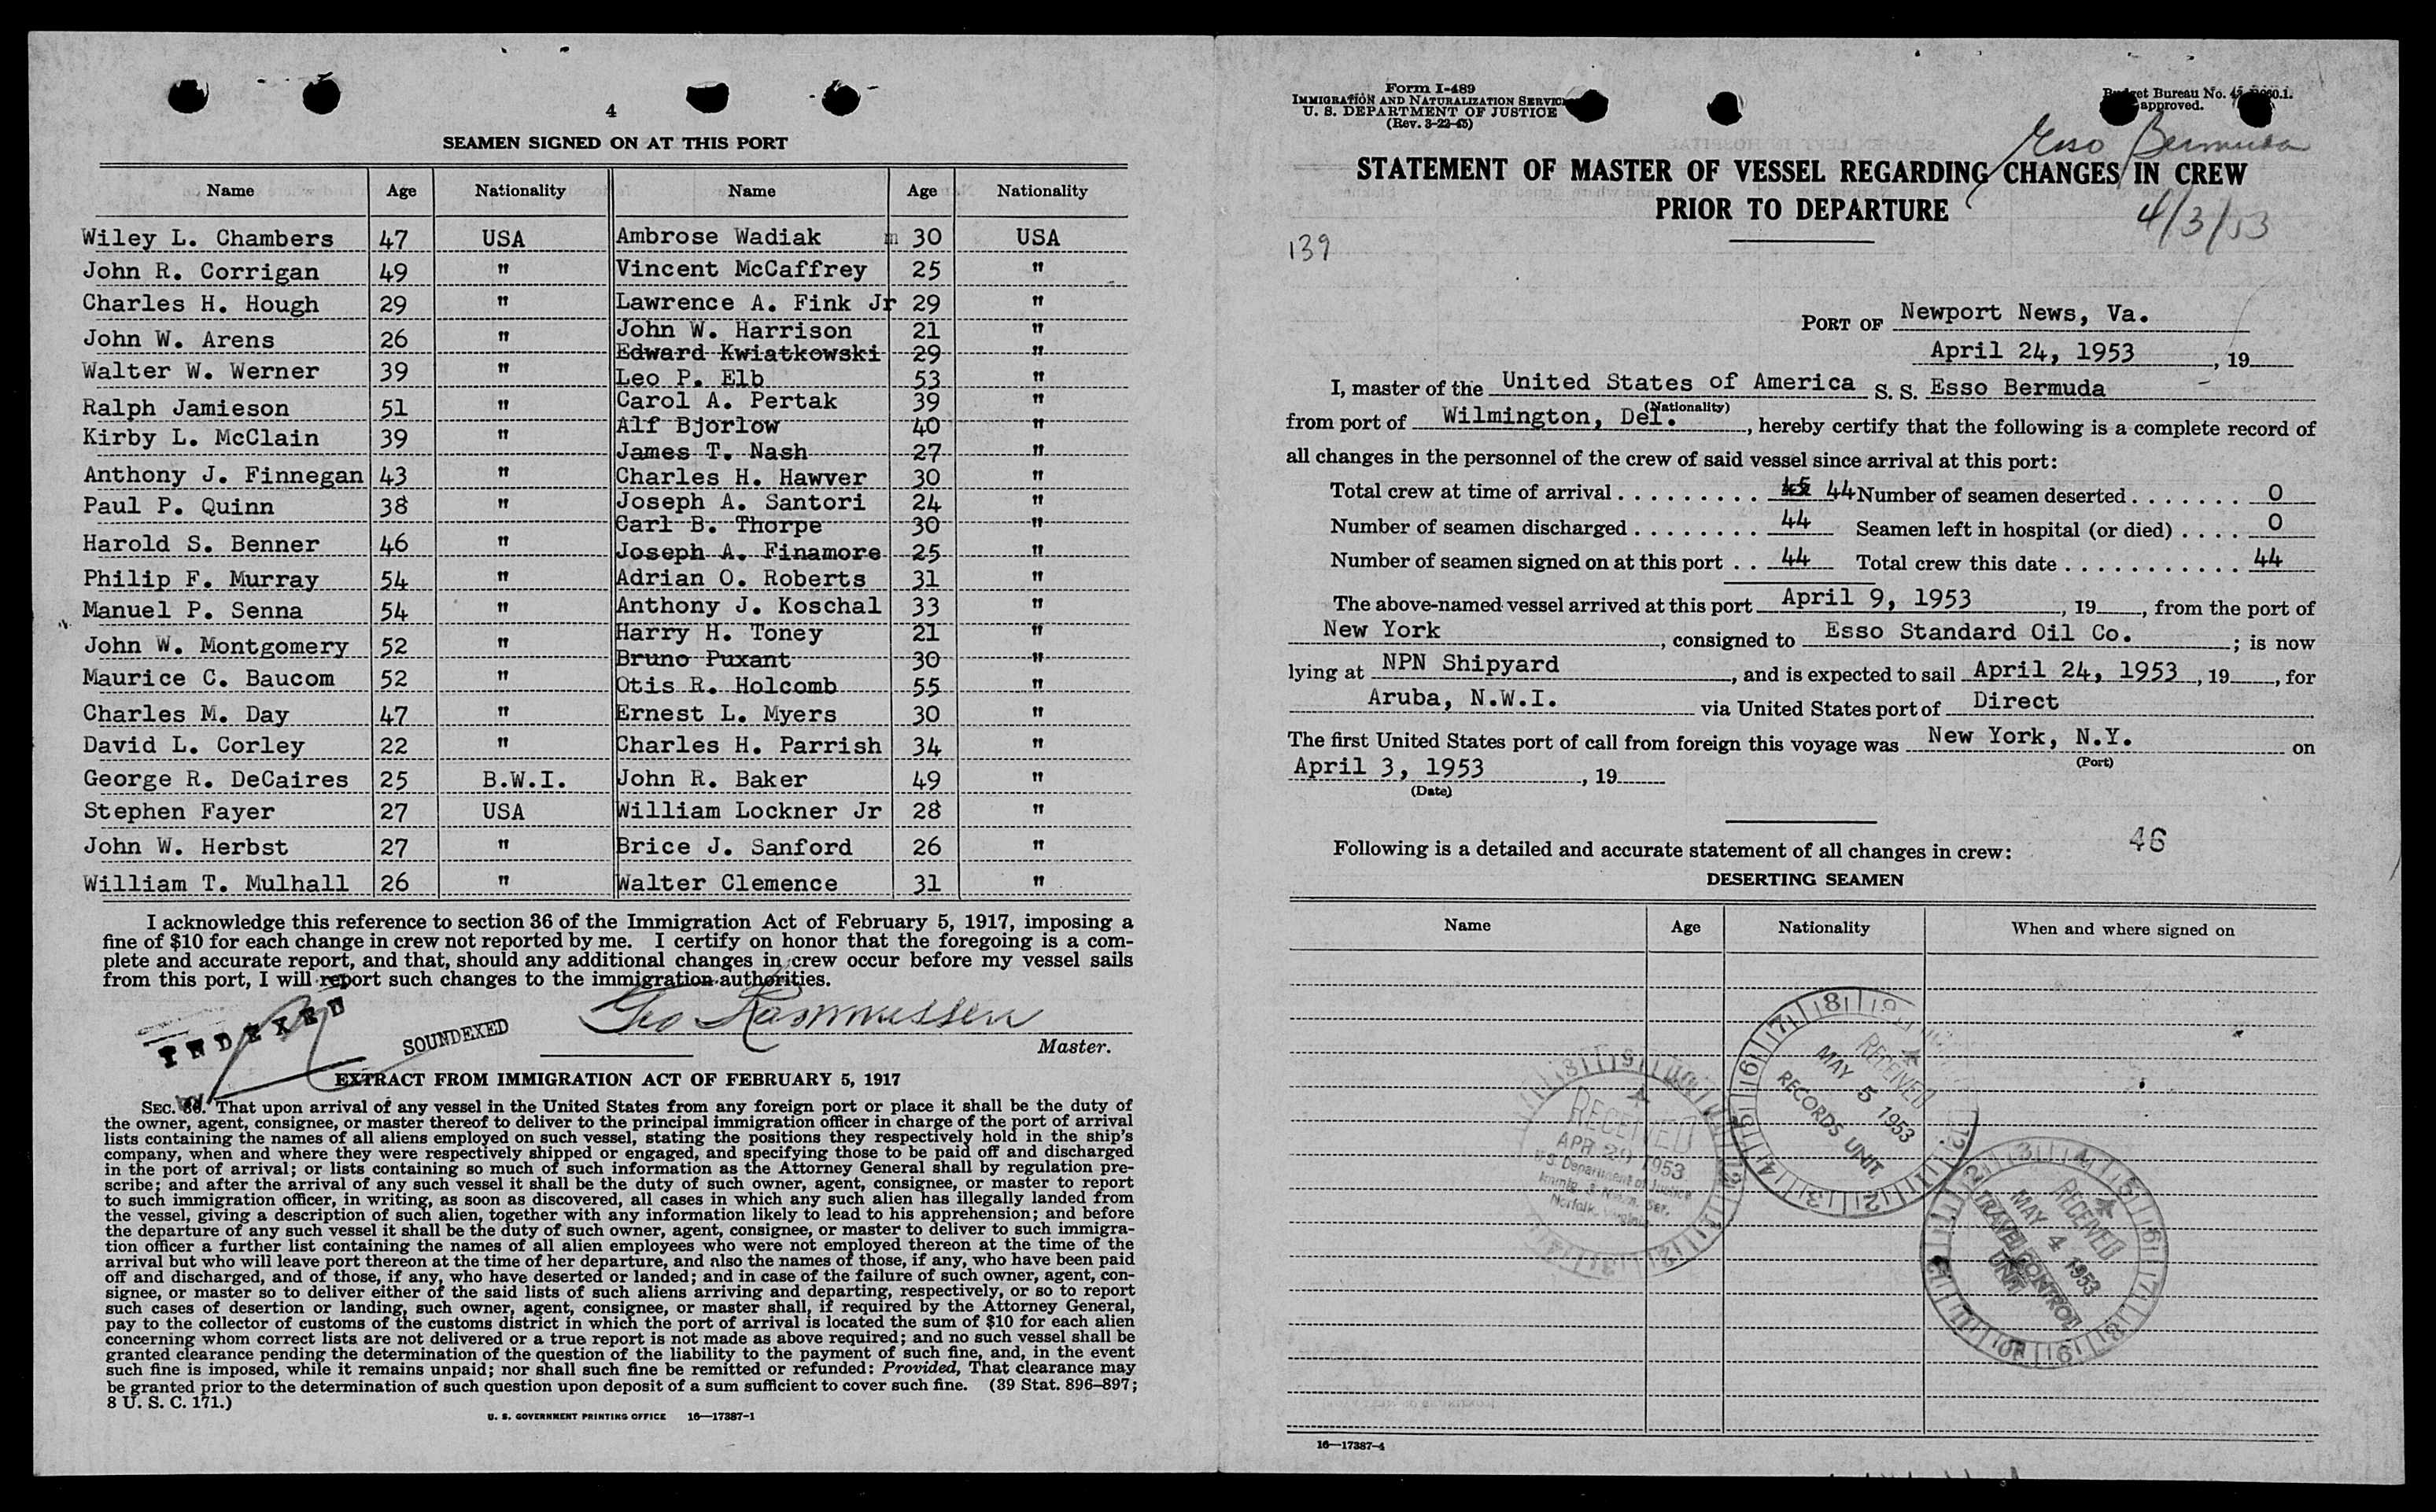 4
SEAMEN SIGNED ON AT THIS PORT
Name Age Nationality Name Age Nationality
Wiley L. Chambers 47 USA Ambrose Wadiak 30 USA
John R. Corrigan 49 " Vincent McCaffrey 25 "
Charles H. Hough 29 " Lawrence A. Fink Jr 29 "
John W. Arens 26 " John W. Harrison 21 "
Edward Kwiatkowski 29 "
Walter W. Werner 39 " Leo P. Elb 53 "
Ralph Jamieson 51 " Carol A. Pertak 39 "
Kirby L. McClain 39 " Alf Bjorlow 40 "
James T. Nash 27 "
Anthony J. Finnegan 43 " Charles H. Hawver 30 "
Paul P. Quinn 38 " Joseph A. Santori 24 "
Carl B. Thorpe 30 "
Harold S. Benner 46 " Joseph A. Finamore 25 "
Philip F. Murray 54 " Adrian O. Roberts 31 "
Manuel P. Senna 54 " Anthony J. Koschal 33 "
John W. Montgomery 52 " Harry H. Toney 21 "
Bruno Puxant 30 "
Maurice C. Baucom 52 " Otis R. Holcomb 55 "
Charles M. Day 47 " Ernest L. Myers 30 "
David L. Corley 22 " Charles H. Parrish 34 "
George R. DeCaires 25 B.W.I. John R. Baker 49 "
Stephen Fayer 27 USA William Lockner Jr 28 "
John W. Herbst 27 " Brice J. Sanford 26 "
William T. Mulhall 26 " Walter Clemence 31 "
I acknowledge this reference to section 36 of the Immigration Act of February 5, 1917, imposing a
fine of $10 for each change in crew not reported by me. I certify on honor that the foregoing is a com-
plete and accurate report, and that, should any additional changes in crew occur before my vessel sails
from this port, I will report such changes to the immigration authorities.
INDEXED
SOUNDEXED
Geo Rasmussen
Master.
EXTRACT FROM IMMIGRATION ACT OF FEBRUARY 5, 1917
SEC. 36. That upon arrival of any vessel in the United States from any foreign port or place it shall be the duty of
the owner, agent, consignee, or master thereof to deliver to the principal immigration officer in charge of the port of arrival
lists containing the names of all aliens employed on such vessel, stating the positions they respectively hold in the ship's
company, when and where they were respectively shipped or engaged, and specifying those to be paid off and discharged
in the port of arrival; or lists containing so much of such information as the Attorney General shall by regulation pre-
scribe; and after the arrival of any such vessel it shall be the duty of such owner, agent, consignee, or master to report
to such immigration officer, in writing, as soon as discovered, all cases in which any such alien has illegally landed from
the vessel, giving a description of such alien, together with any information likely to lead to his apprehension; and before
the departure of any such vessel it shall be the duty of such owner, agent, consignee, or master to deliver to such immigra-
tion officer a further list containing the names of all alien employees who were not employed thereon at the time of the
arrival but who will leave port thereon at the time of her departure, and also the names of those, if any, who have been paid
off and discharged, and of those, if any, who have deserted or landed; and in case of the failure of such owner, agent, con-
signee, or master so to deliver either of the said lists of such aliens arriving and departing, respectively, or so to report
such cases of desertion or landing, such owner, agent, consignee, or master shall, if required by the Attorney General,
pay to the collector of customs of the customs district in which the port of arrival is located the sum of $10 for each alien
concerning whom correct lists are not delivered or a true report is not made as above required; and no such vessel shall be
granted clearance pending the determination of the question of the liability to the payment of such fine, and, in the event
such fine is imposed, while it remains unpaid; nor shall such fine be remitted or refunded: Provided, That clearance may
be granted prior to the determination of such question upon deposit of a sum sufficient to cover such fine. (39 Stat. 896–897;
8 U. S. C. 171.)
U. S. GOVERNMENT PRINTING OFFICE 16—17387-1
Form I-489
IMMIGRATION AND NATURALIZATION SERVICE
U. S. DEPARTMENT OF JUSTICE
(Rev. 3-22-45)
Budget Bureau No.
approved.
Esso Bermuda
STATEMENT OF MASTER OF VESSEL REGARDING CHANGES IN CREW
PRIOR TO DEPARTURE
4/3/53
139
PORT OF Newport News, Va.
April 24, 1953, 19
I, master of the United States of America S. S. Esso Bermuda
(Nationality)
from port of Wilmington, Del., hereby certify that the following is a complete record of
all changes in the personnel of the crew of said vessel since arrival at this port:
Total crew at time of arrival 44 Number of seamen deserted 0
Number of seamen discharged 44 Seamen left in hospital (or died) 0
Number of seamen signed on at this port 44 Total crew this date 44
The above-named vessel arrived at this port April 9, 1953, 19, from the port of
New York, consigned to Esso Standard Oil Co.; is now
lying at NPN Shipyard, and is expected to sail April 24, 1953, 19, for
Aruba, N.W.I. via United States port of Direct
The first United States port of call from foreign this voyage was New York, N.Y. on
(Port)
April 3, 1953, 19
(Date)
46
Following is a detailed and accurate statement of all changes in crew:
DESERTING SEAMEN
Name Age Nationality When and where signed on
RECEIVED
MAY 5 1953
RECORDS UNIT
RECEIVED
APR 29 1953
U.S. Department of Justice
Immig. & Natzn. Ser.
Norfolk, Virginia
RECEIVED
MAY 4 1953
TRAVEL CONTROL
UNIT
16—17387-4